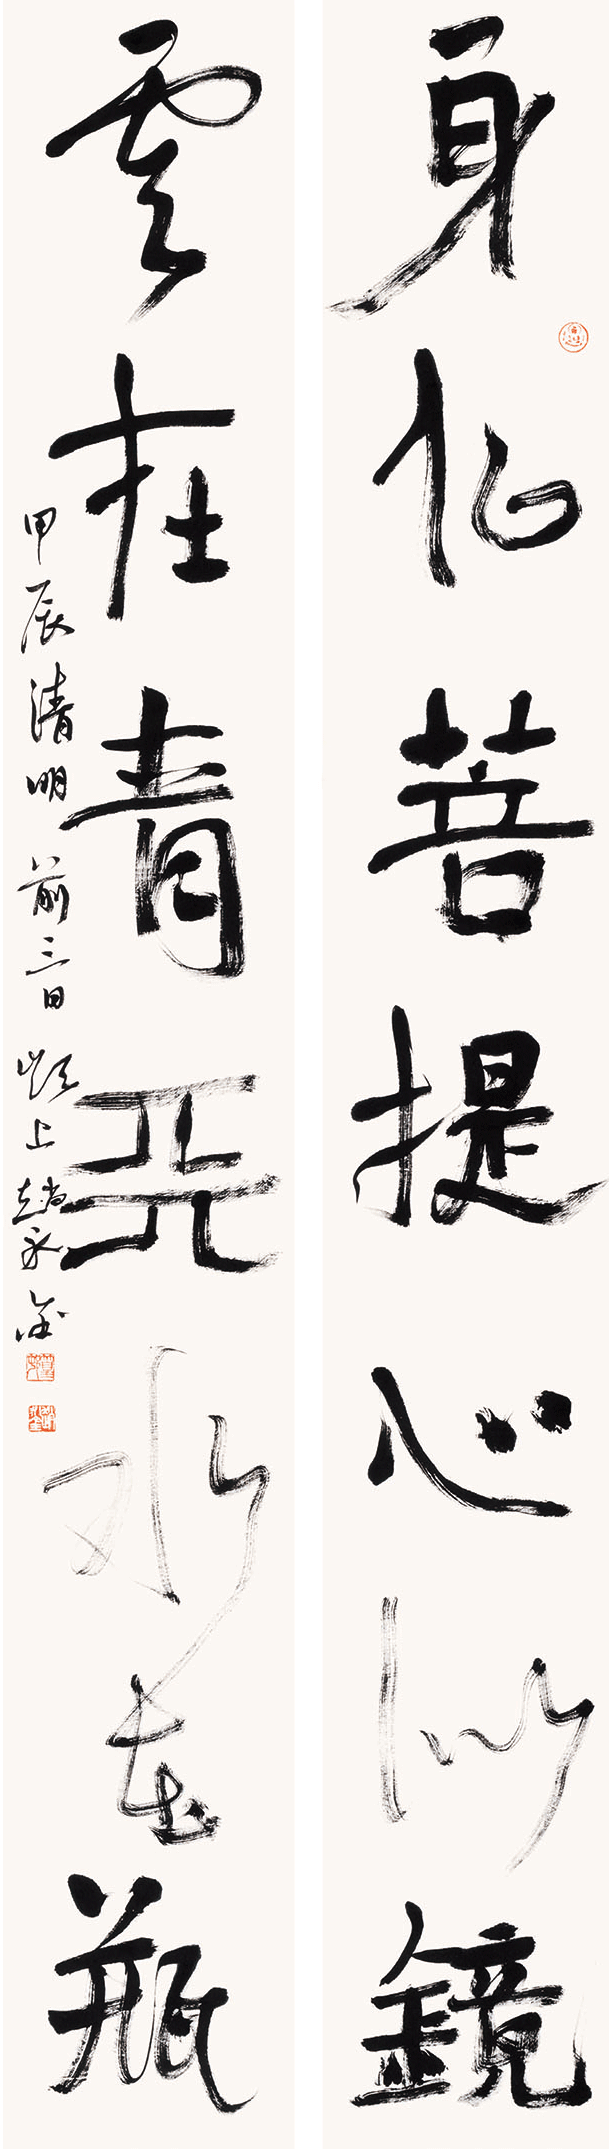 身似菩提心似鏡
雲在青天水在瓶
甲辰清明前三日 上趙永金